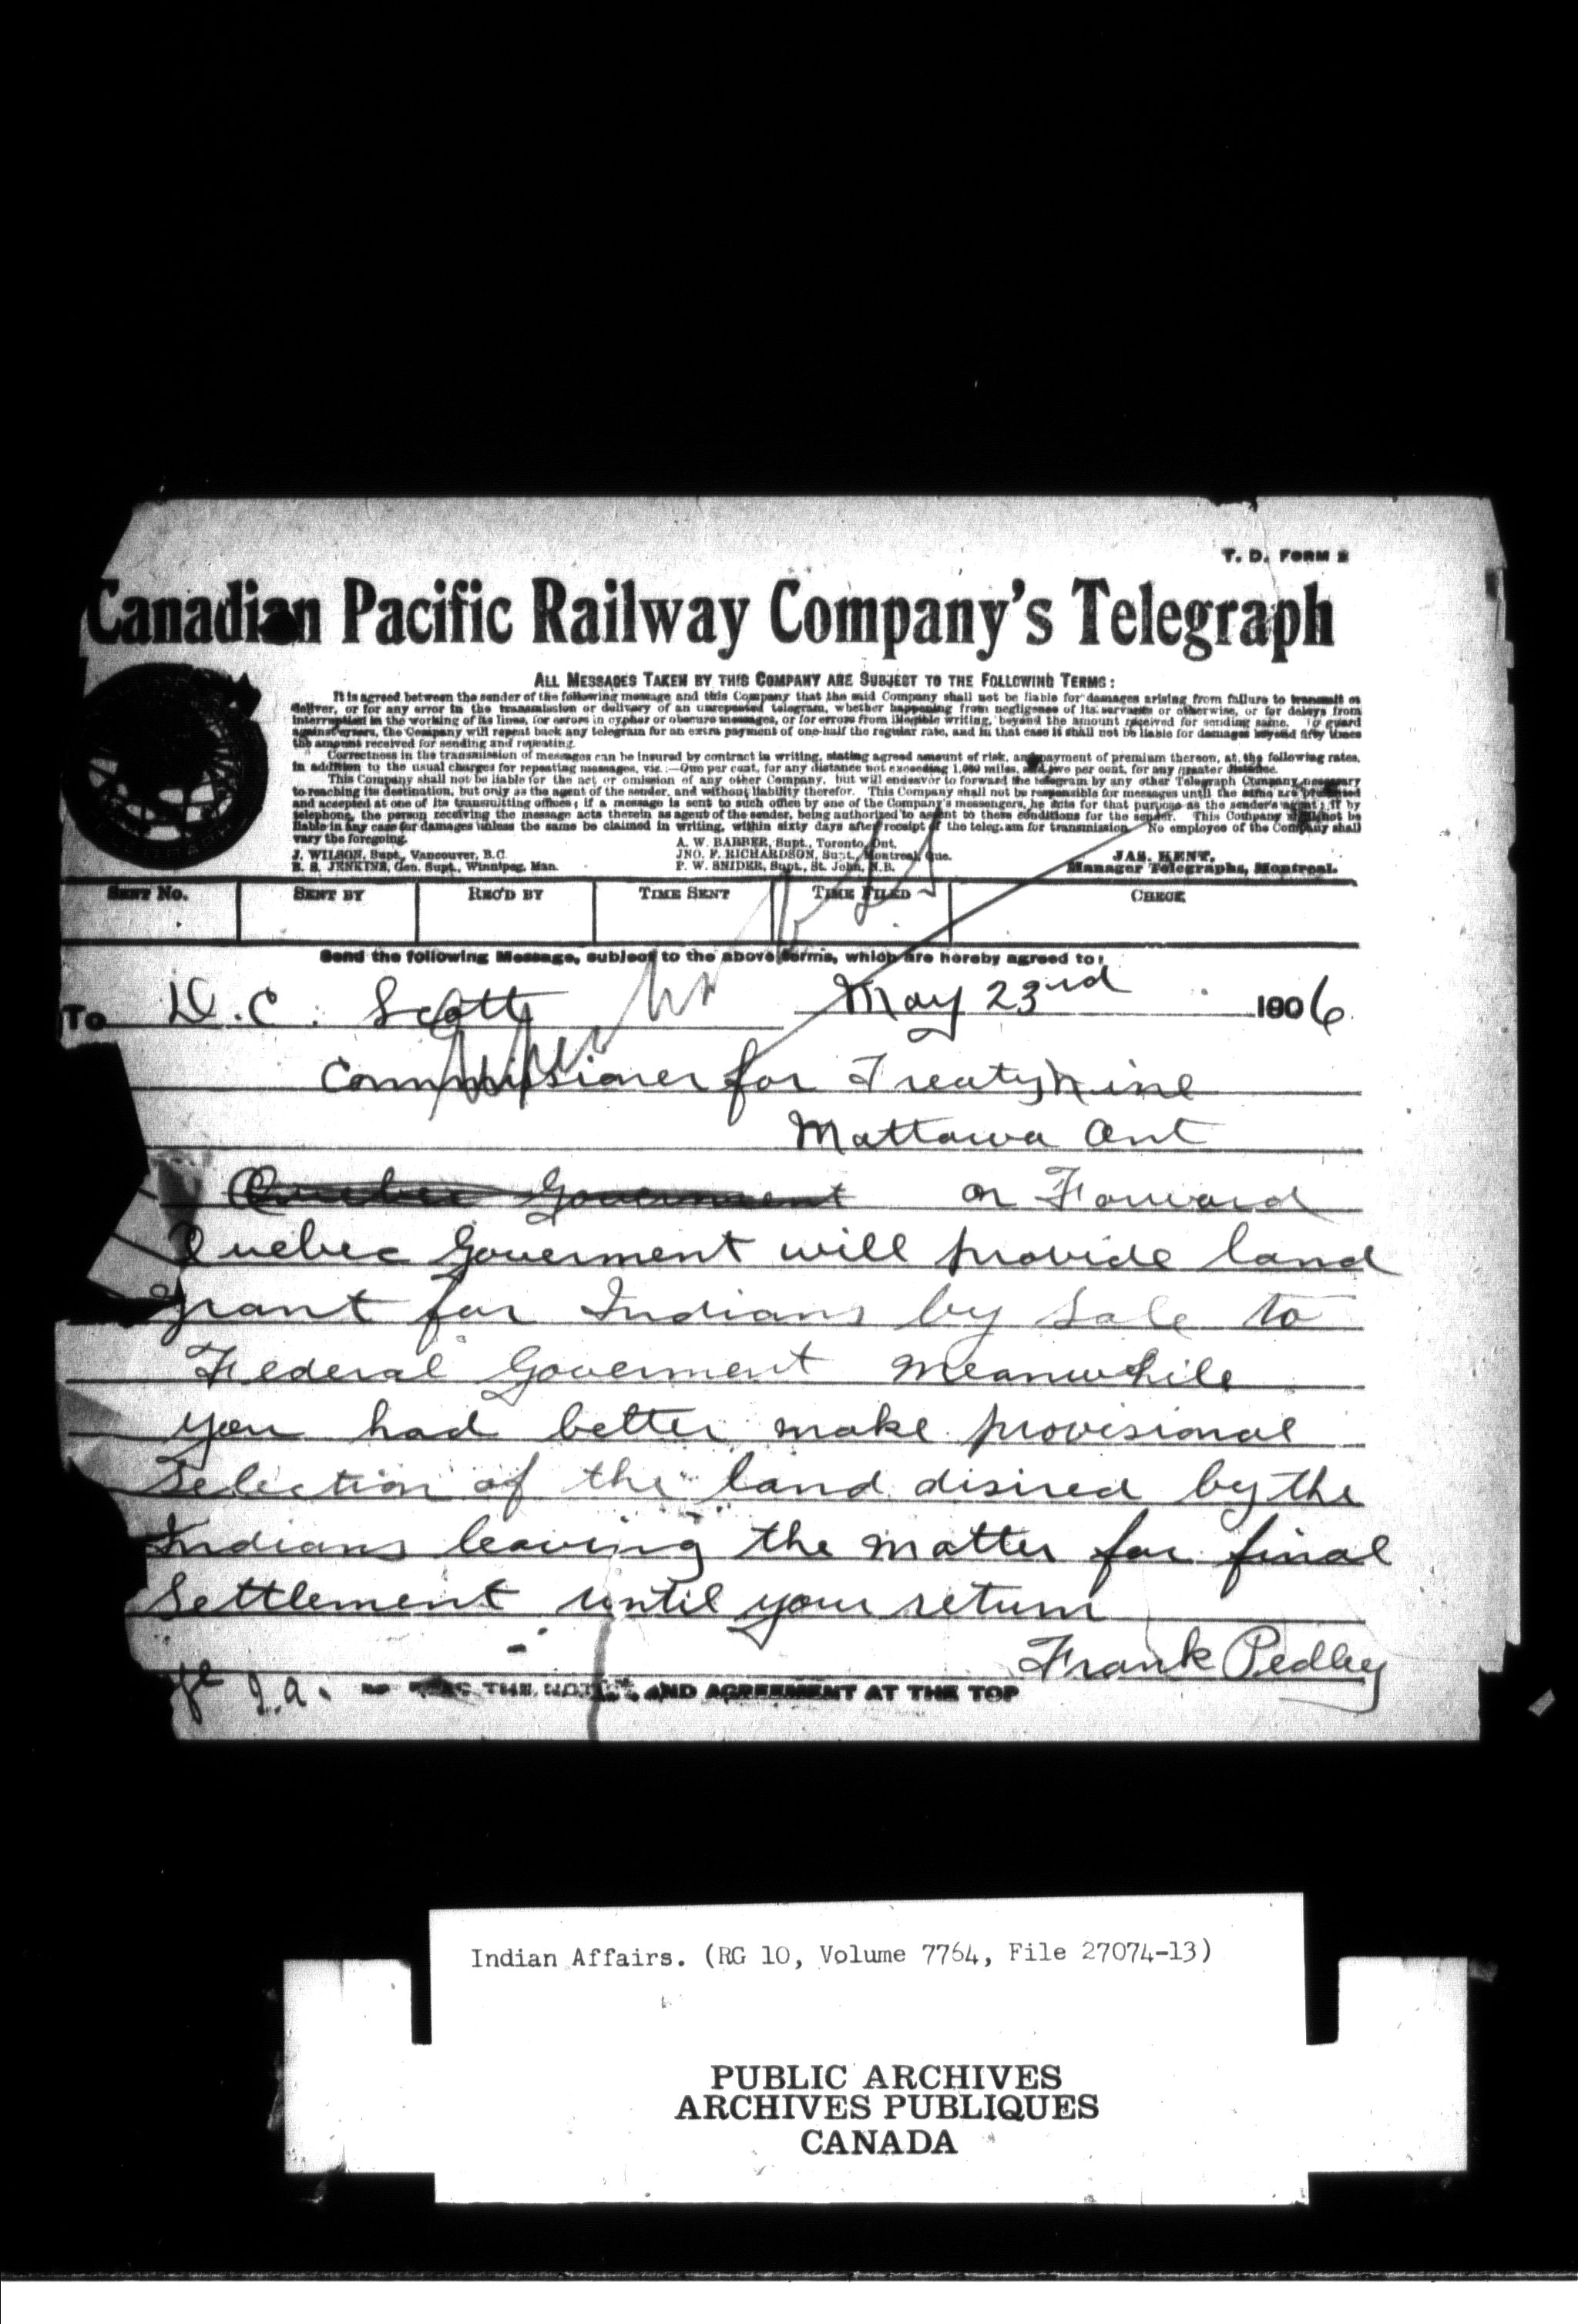 T. D. FORM 2
Canadian Pacific Railway Company's Telegraph
ALL MESSAGES TAKEN BY THIS COMPANY ARE SUBJECT TO THE FOLLOWING TERMS:
It is agreed between the sender of the following message and this Company that the said Company shall not be liable for damages arising from failure to transmit or
deliver, or for any error in the transmission or delivery of an unrepeated telegram, whether happening from negligence of its servants or otherwise, or for delays from
interruptions in the working of its lines, for errors in cypher or obscure messages, or for errors from illegible writing, beyond the amount received for sending same. To guard
against errors, the Company will repeat back any telegram for an extra payment of one-half the regular rate, and in that case it shall not be liable for damages beyond fifty times
the amount received for sending and repeating.
Correctness in the transmission of messages can be insured by contract in writing, stating agreed amount of risk, and payment of premium thereon, at the following rates,
in addition to the usual charges for repeating messages, viz.:—One per cent. for any distance not exceeding 1,000 miles, and two per cent. for any greater distance.
This Company shall not be liable for the act or omission of any other Company, but will endeavor to forward the telegram by any other Telegraph Company necessary
to reaching its destination, but only as the agent of the sender, and without liability therefor. This Company shall not be responsible for messages until the same are presented
and accepted at one of its transmitting offices; if a message is sent to such office by one of the Company's messengers, he acts for that purpose as the sender's agent; if by
telephone, the person receiving the message acts therein as agent of the sender, being authorized to assent to these conditions for the sender. This Company shall not be
liable in any case for damages unless the same be claimed in writing, within sixty days after receipt of the telegram for transmission. No employee of the Company shall
vary the foregoing.
J. WILSON, Supt., Vancouver, B.C.
B. S. JENKINS, Gen. Supt., Winnipeg, Man.
A. W. BARBER, Supt., Toronto, Ont.
JNO. F. RICHARDSON, Supt., Montreal, Que.
P. W. SNIDER, Supt., St. John, N.B.
JAS. KENT,
Manager Telegraphs, Montreal.
SENT No. SENT BY REC'D BY TIME SENT TIME FILED CHECK
Send the following Message, subject to the above terms, which are hereby agreed to:
To D. C. Scott May 23rd 1906
Commissioner for Treaty Nine
Mattawa Ont
Quebec Government or Forward
Quebec Goverment will provide land
grant for Indians by sale to
Federal Goverment meanwhile
you had better make provisional
selection of the land disired by the
Indians leaving the matter for final
settlement until your return
Frank Pedley
THE NOTICE AND AGREEMENT AT THE TOP
Indian Affairs. (RG 10, Volume 7764, File 27074-13)
PUBLIC ARCHIVES
ARCHIVES PUBLIQUES
CANADA